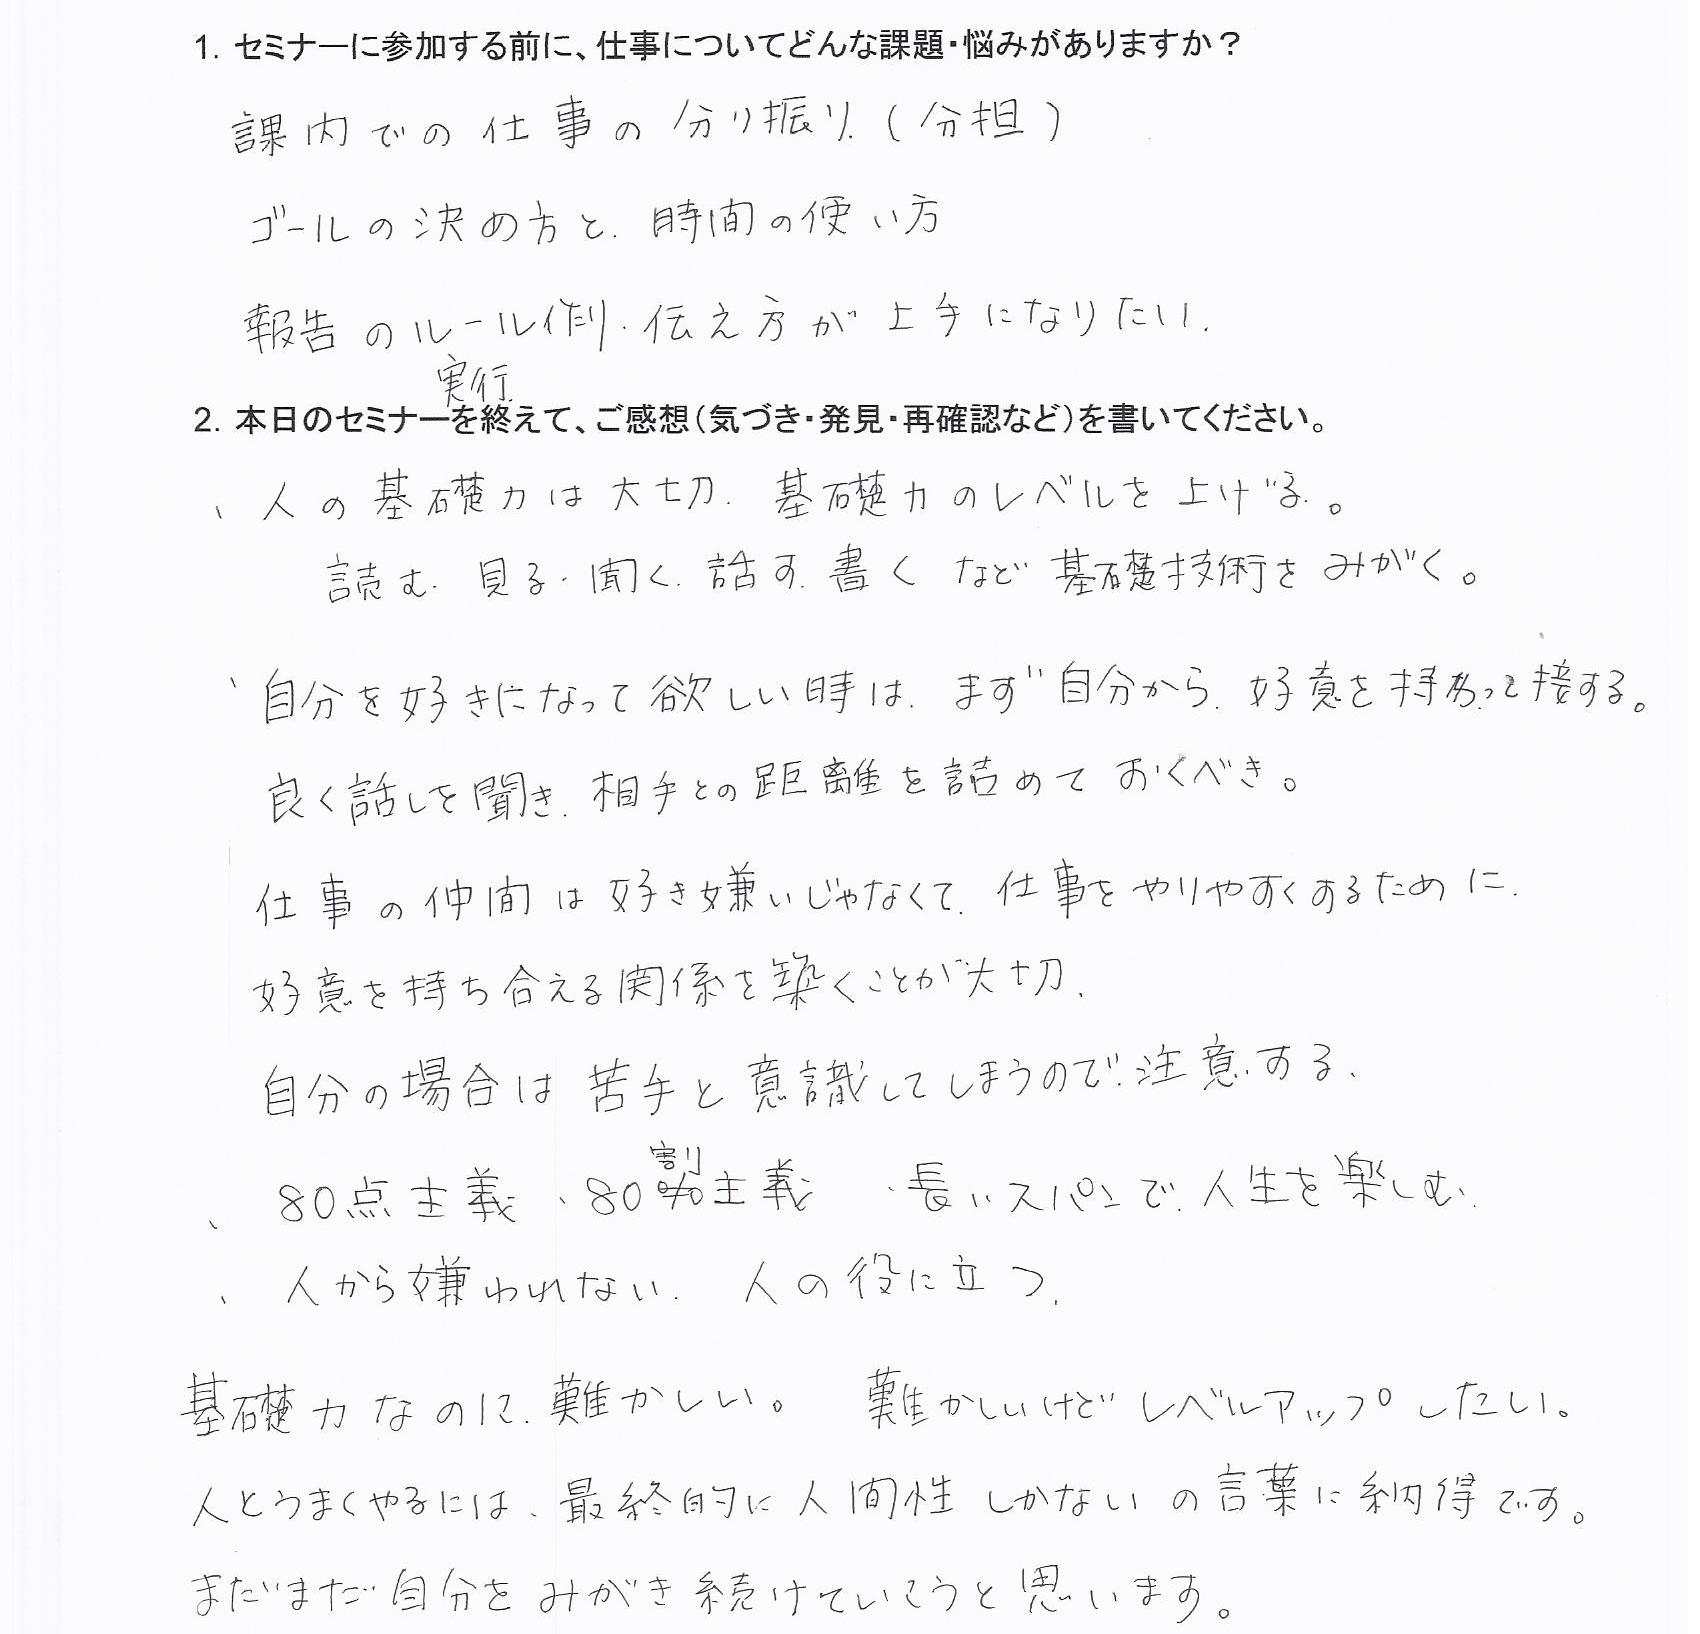 1. セミナーに参加する前に、仕事についてどんな課題・悩みがありますか？
課内での仕事の分り振り（分担）
ゴールの決め方と、時間の使い方
報告のルール作り、伝え方が上手になりたい。
実行
2. 本日のセミナーを終えて、ご感想（気づき・発見・再確認など）を書いてください。
、人の基礎力は大切、基礎力のレベルを上げる。
読む、見る、聞く、話す、書く など 基礎技術をみがく。
、自分を好きになって欲しい時は、まず自分から、好意を持って接する。
良く話しを聞き、相手との距離を詰めておくべき。
仕事の仲間は好き嫌いじゃなくて、仕事をやりやすくするために、
好意を持ち合える関係を築くことが大切、
自分の場合は苦手と意識してしまうので、注意する、
割
、80点主義、80%主義 、長いスパンで、人生を楽しむ、
、人から嫌われない、人の役に立つ、
基礎力なのに、難かしい。 難かしいけどレベルアップしたい。
人とうまくやるには、最終的に人間性しかないの言葉に納得です。
まだまだ自分をみがき続けていこうと思います。